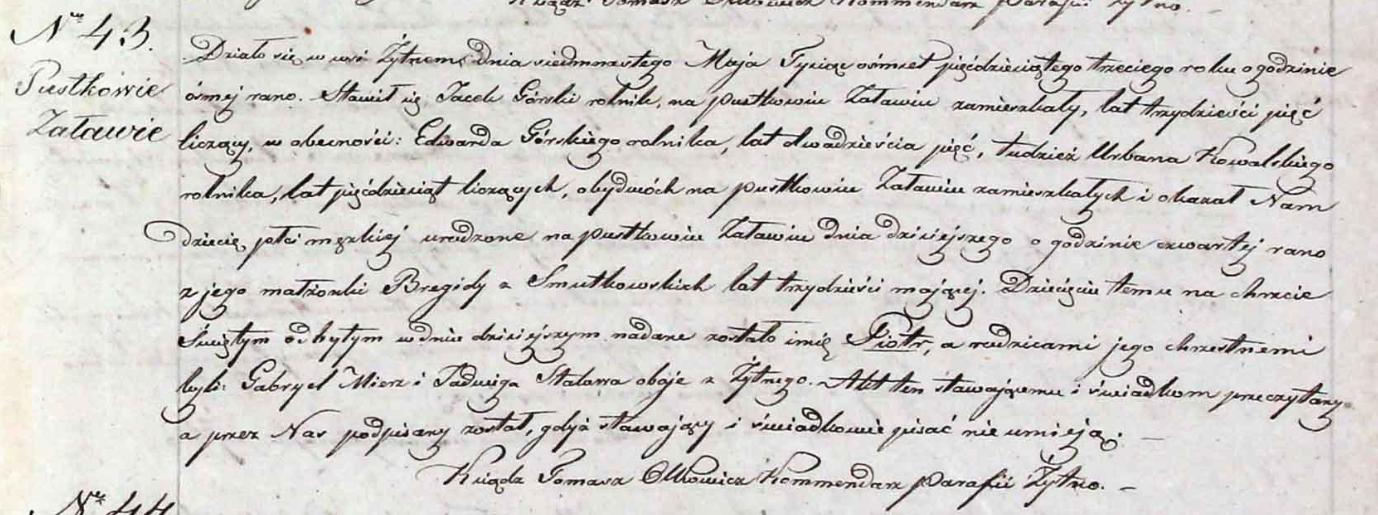 Ksiądz Tomasz Olkowicz Kommendarz Parafii Żytno.
Nr 43.
Pustkowie
Załawie
Działo się w wsi Żytnem dnia siedmnastego Maja Tysiąc ośmset pięćdziesiątego trzeciego roku o godzinie
ósmej rano. Stawił się Jacek Górski rolnik, na pustkowiu Załawiu zamieszkały, lat trzydzieści pięć
liczący, w obecności: Edwarda Górskiego rolnika, lat dwadzieścia pięć, tudzież Urbana Kowalskiego
rolnika, lat pięćdziesiąt liczących, obydwóch na pustkowiu Załawiu zamieszkałych i okazał Nam
dziecię płci męzkiej urodzone na pustkowiu Załawiu dnia dzisiejszego o godzinie czwartej rano
z jego małżonki Bregidy z Smutkowskich lat trzydzieści mającej. Dziecięciu temu na chrzcie
Świętym odbytym w dniu dzisiejszym nadane zostało imię Piotr, a rodzicami jego chrzestnemi
byli: Gabryel Mierz i Jadwiga Stalowa oboje z Żytnego. Akt ten stawającemu i świadkom przeczytany
a przez Nas podpisany został, gdyż stawający i świadkowie pisać nie umieją. –
Ksiądz Tomasz Olkowicz Kommendarz Parafii Żytno. –
Nr 44